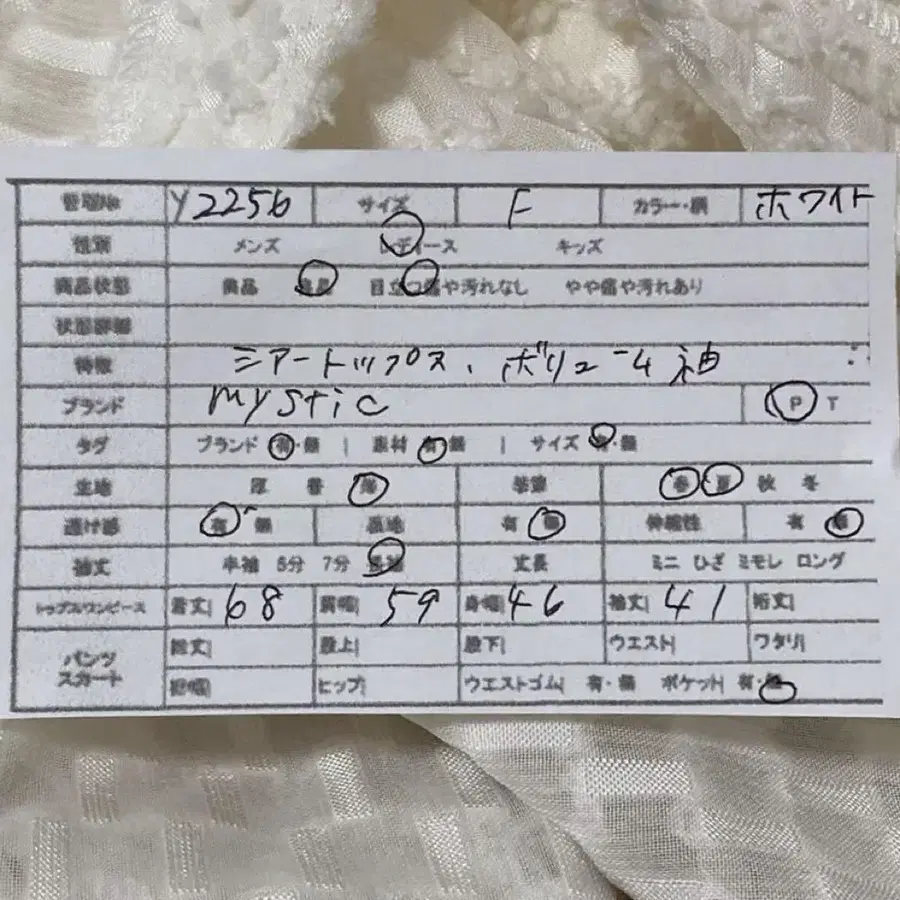 管理No Y2256 サイズ F カラー・柄 ホワイト
性別 メンズ レディース キッズ
商品状態 美品 目立つ傷や汚れなし やや傷や汚れあり
状態詳細
特徴 シアートップス、ボリューム袖
ブランド mystic P T
タグ ブランド 有・無 | 素材 有・無 | サイズ 有・無
生地 厚 普 薄 季節 春 夏 秋 冬
透け感 有 無 裏地 有 無 伸縮性 有 無
袖丈 半袖 5分 7分 長袖 丈長 ミニ ひざ ミモレ ロング
トップス/ワンピース 着丈 68 肩幅 59 身幅 46 袖丈 41 裄丈
パンツ スカート 総丈 股上 股下 ウエスト ワタリ
裾幅 ヒップ ウエストゴム 有・無 ポケット 有・無